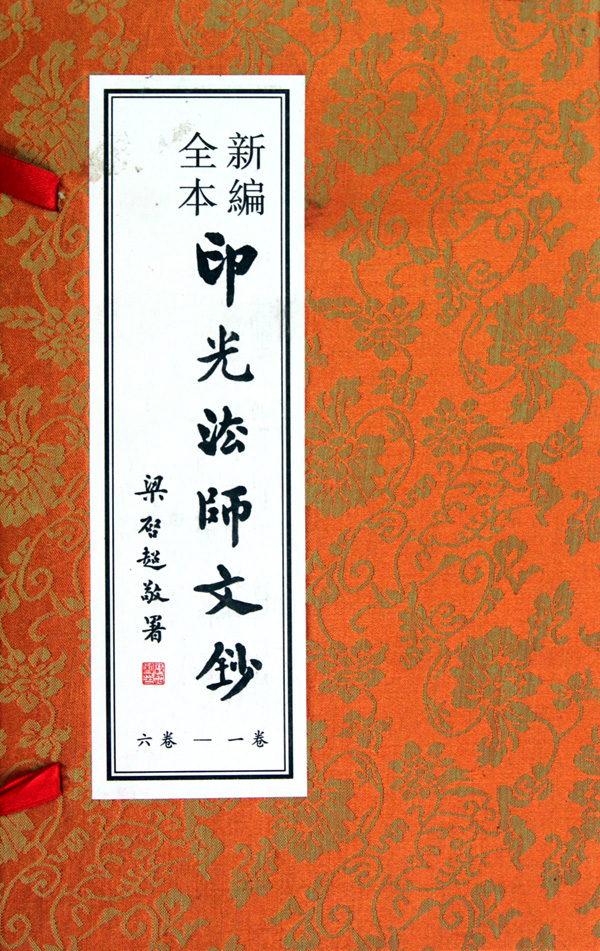 新編
全本
印光法師文鈔
梁啓超敬署
卷一—卷六